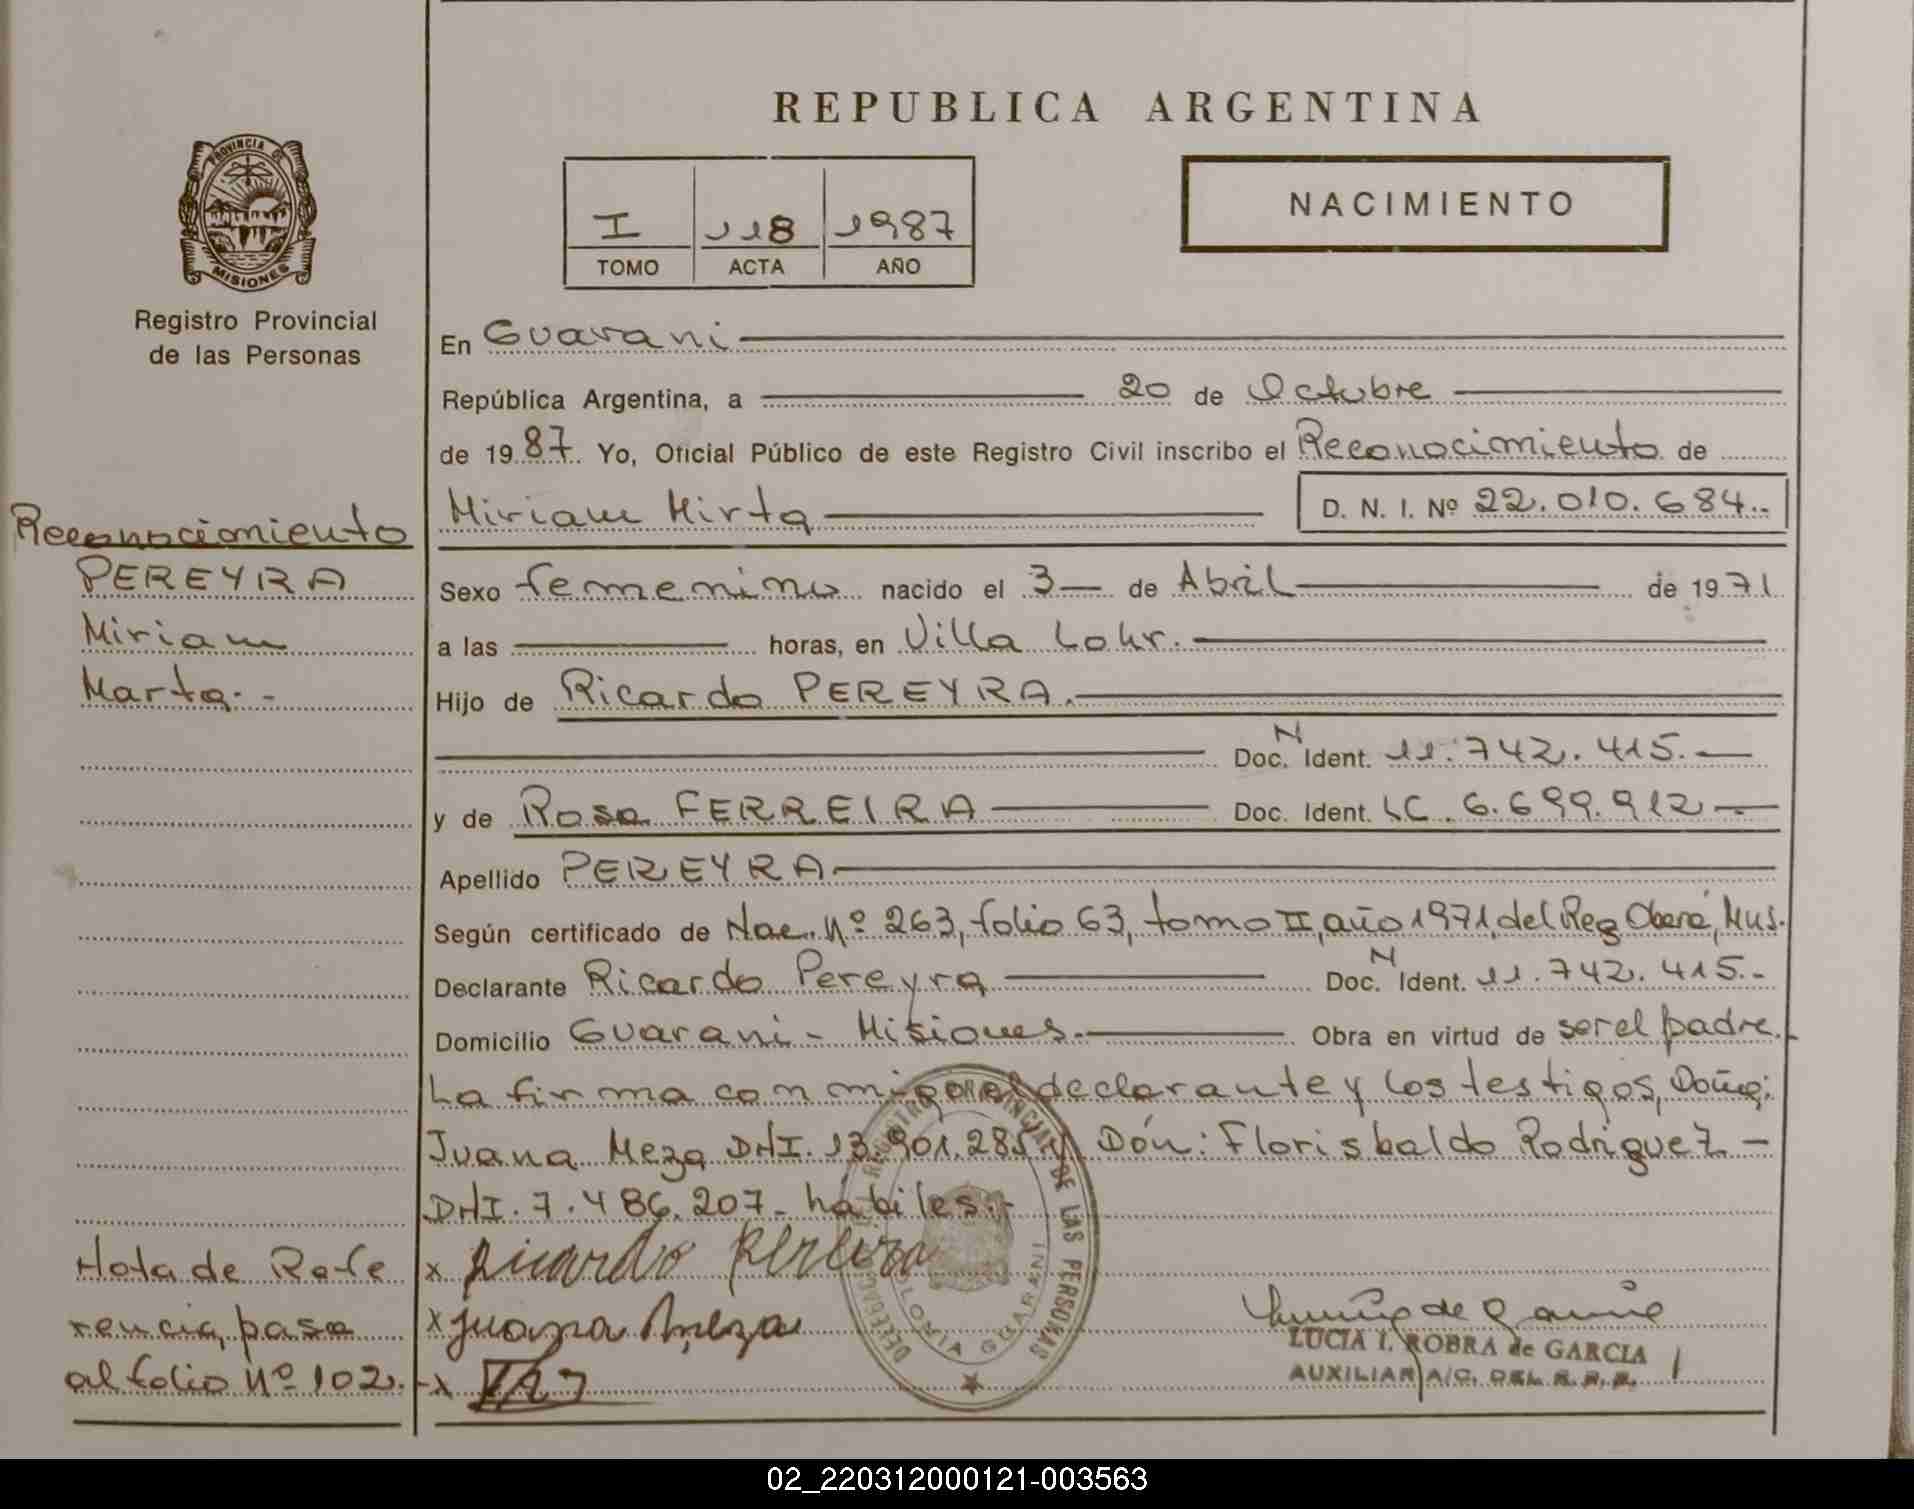 REPUBLICA ARGENTINA
PROVINCIA DE MISIONES
Registro Provincial
de las Personas
I 118 1987
TOMO ACTA AÑO
NACIMIENTO
En Guarani
República Argentina, a 20 de Octubre
de 1987. Yo, Oficial Público de este Registro Civil inscribo el Reconocimiento de
Miriam Mirta D. N. I. Nº 22.010.684.-
Sexo femenino nacido el 3 de Abril de 1971
a las horas, en Villa Lohr.
Hijo de Ricardo PEREYRA.
Doc. N Ident. 11.742.415.-
y de Rosa FERREIRA Doc. Ident. LC. 6.699.912-
Apellido PEREYRA
Según certificado de Nac. Nº 263, folio 63, tomo II, año 1971, del Reg Oberá, Mns.
Declarante Ricardo Pereyra Doc. N Ident. 11.742.415.-
Domicilio Guarani - Misiones. Obra en virtud de ser el padre.-
La firma con migo el declarante y los testigos, Doña:
Juana Meza DNI. 13.901.285 y Dón: Florisbaldo Rodriguez -
DNI. 7.486.207- hábiles.-
x Ricardo Pereira
x Juana Meza
x
LUCIA I. ROBRA de GARCIA
AUXILIAR A/C. DEL R. P. P.
REGISTRO PROVINCIAL DE LAS PERSONAS
COLONIA GUARANI
Reconocimiento
PEREYRA
Miriam
Marta.-
Nota de Refe
rencia, pasa
al folio Nº 102.-
02_220312000121-003563